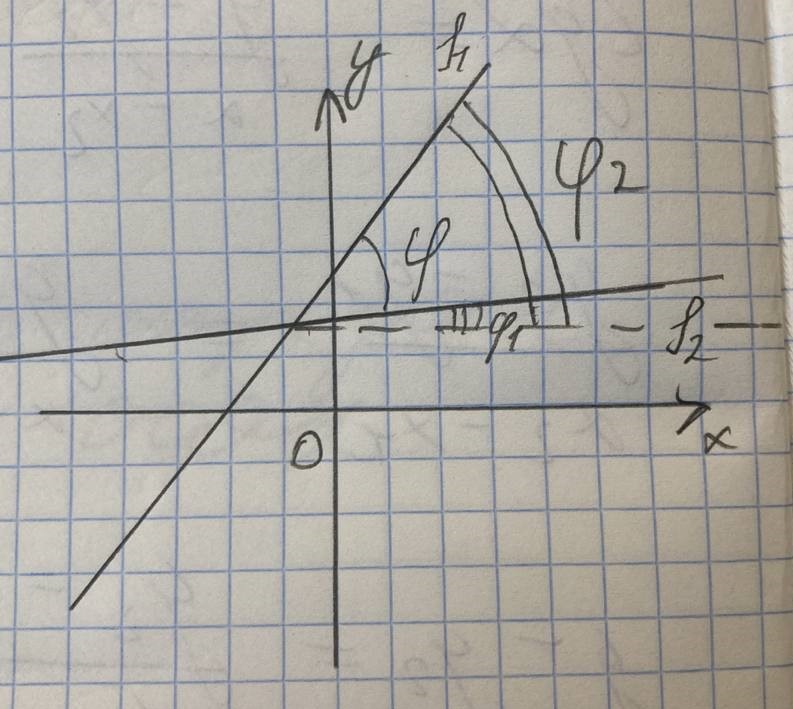 y
f₁
φ₂
φ
φ₁
f₂
0
x